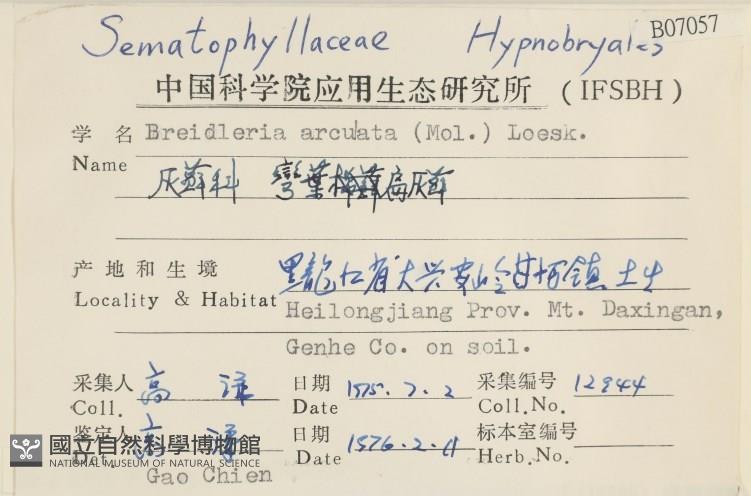 Sematophyllaceae Hypnobryales B07057
中国科学院应用生态研究所 (IFSBH)
学 名 Breidleria arcuata (Mol.) Loesk.
Name
灰蘚科 彎葉 扁灰蘚
产 地 和 生 境 黑龍江省大兴安岭 镇 土生
Locality & Habitat Heilongjiang Prov. Mt. Daxingan,
Genhe Co. on soil.
采集人 高 谦 日期 1975.7.2 采集编号 12944
Coll. Date Coll.No.
鉴定人 高 谦 日期 1976.2.11 标本室编号
Det. Date Herb.No.
Gao Chien
國立自然科學博物館
NATIONAL MUSEUM OF NATURAL SCIENCE